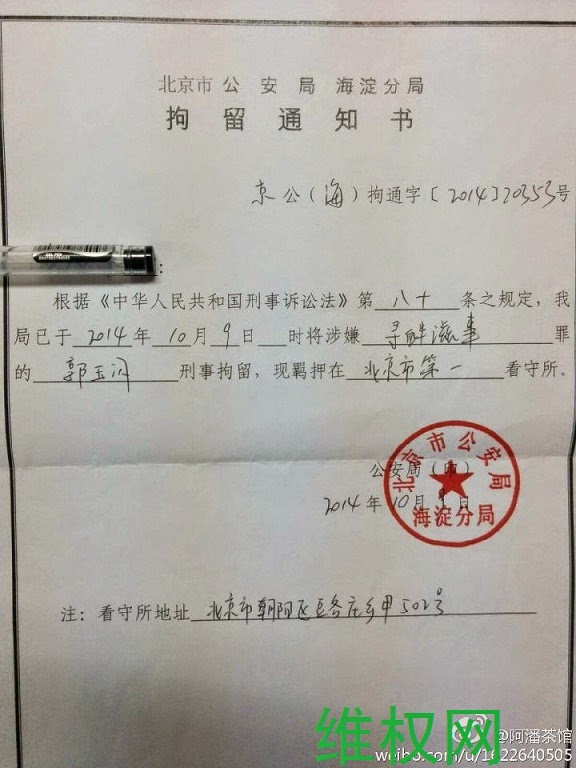 北京市 公 安 局 海淀分局
拘 留 通 知 书
京 公（海）拘通字〔2014〕20353号
根据《中华人民共和国刑事诉讼法》第 八十 条之规定，我
局已于 2014 年 10 月 9 日 时将涉嫌 寻衅滋事 罪
的 郭玉闪 刑事拘留，现羁押在 北京市第一 看守所。
公安局（印）
2014 年 10 月 9 日
北京市公安局
海淀分局
注：看守所地址 北京市朝阳区豆各庄乡甲502号
维权网
@阿潘茶馆
weibo.com/u/1622640505